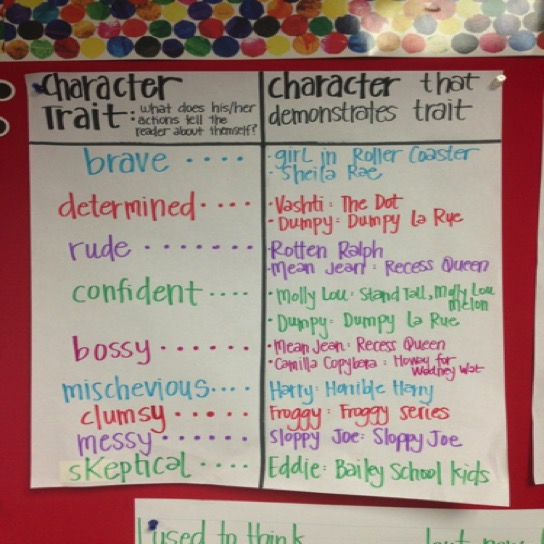 Character Trait: what does his/her actions tell the reader about themself?
character that demonstrates trait
brave ....
• girl in Roller Coaster
• Sheila Rae
determined....
• Vashti: The Dot
• Dumpy: Dumpy La Rue
rude .......
• Rotten Ralph
• Mean Jean: Recess Queen
confident ....
• Molly Lou: Stand Tall, Molly Lou Melon
• Dumpy: Dumpy La Rue
bossy ......
• Mean Jean: Recess Queen
• Camilla Copybara: Hooway for Wodney Wat
mischevious....
Harry: Horrible Harry
clumsy .....
Froggy: Froggy series
messy ......
Sloppy Joe: Sloppy Joe
skeptical ....
Eddie: Bailey School kids
I used to think but now I